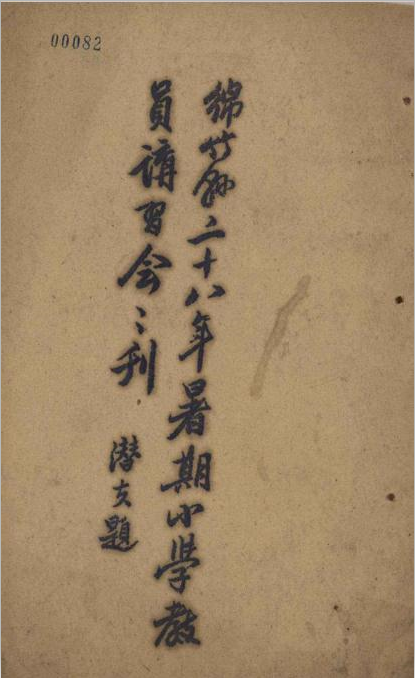 00082
綿竹縣二十八年暑期小學教
員講習会々刊
潜支題